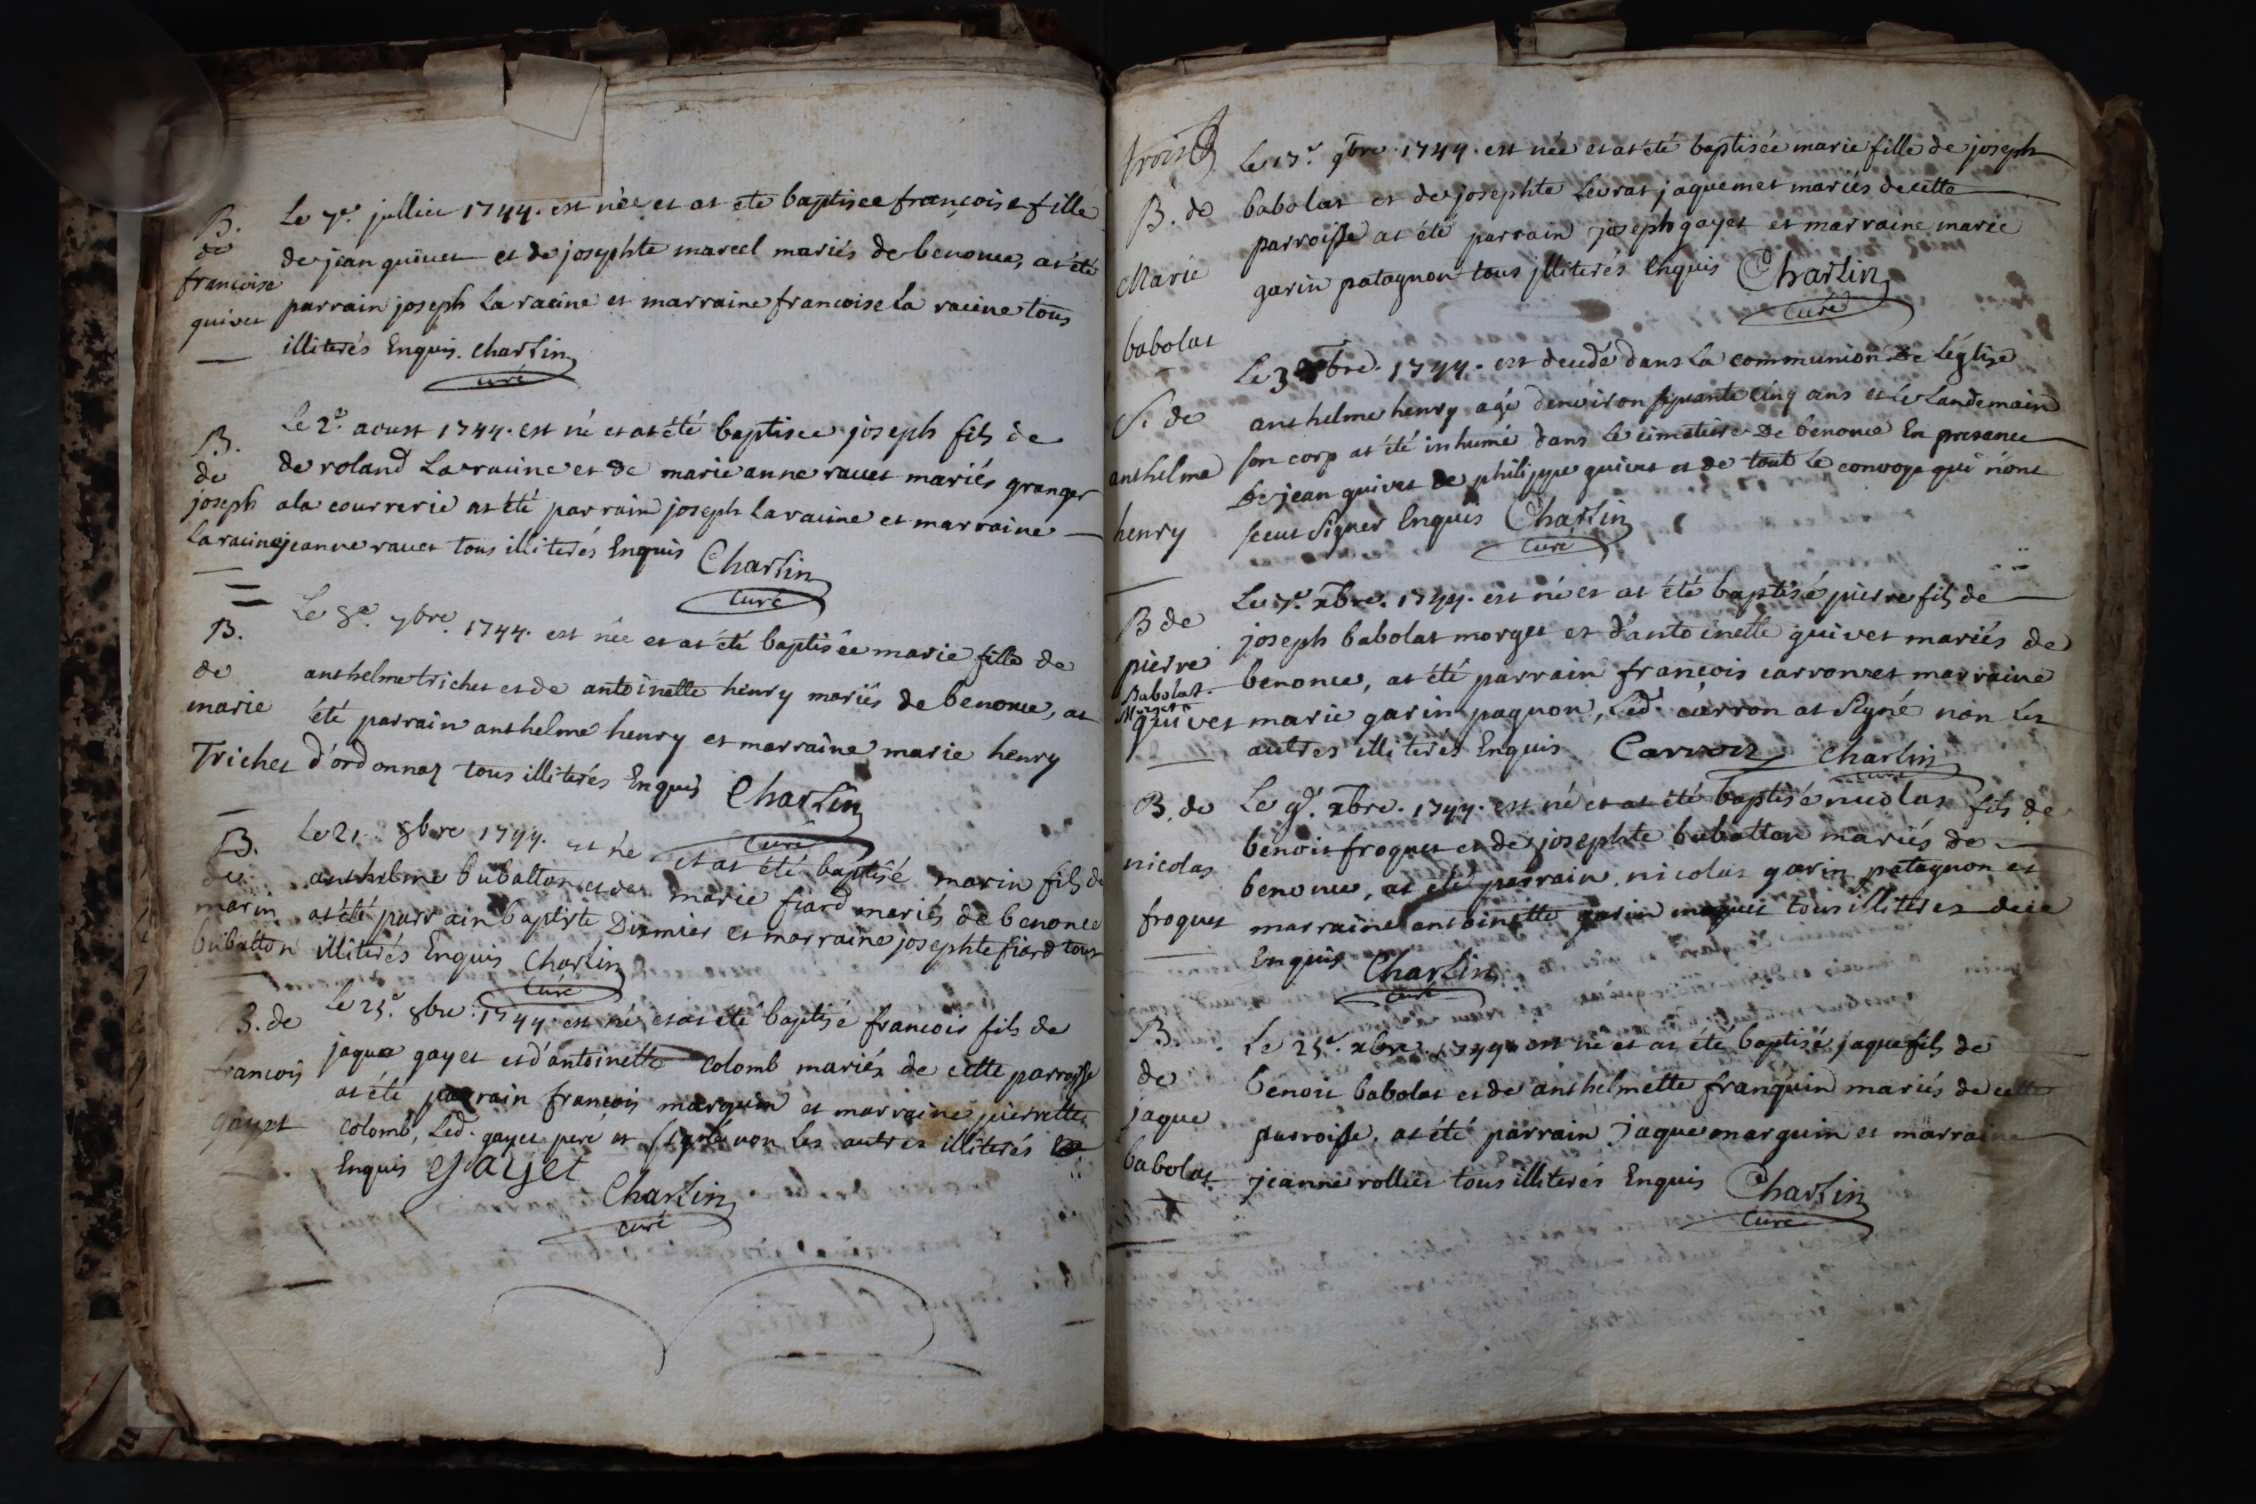 B.
de
francoise
quivet
Le 7e. jullier 1744. est née et at eté baptisee francoise fille
de jean quivet et de josephte marcel mariés de benonce, at eté
parrain joseph La racine et marraine francoise la racine tous
illiterés Enquis. Charlin
curé
B.
de
joseph
Laracine
Le 2e. aoust 1744. est né et at été baptisee joseph fils de
de roland Laracine et de marie anne ravet mariés granger
a la courrerie at été parrain joseph laracine et marraine
jeanne ravet tous illiterés Enquis Charlin
curé
B.
de
marie
Trichet
Le 8e. 7bre. 1744. est née et at été baptisée marie fille de
anthelme trichet et de antoinette henry mariés de benonce, at
été parrain anthelme henry et marraine marie henry
d'ordonnaz tous illiterés Enquis Charlin
curé
B.
de
marin
bubatton
Le 21. 8bre 1744. est né et at été baptisé marin fils de
anthelme bubatton et de marie fiard mariés de benonce
at été parrain baptiste Dismier et marraine josephte fiard tous
illiterés Enquis Charlin
curé
B. de
francois
gayet
Le 25e. 8bre. 1744. est né et at eté baptisé francois fils de
jaque gayet et d'antoinette Colomb mariés de cette parroisse
at été parrain francois marguin et marraine pierrette
Colomb, Led. gayet pere et signé non les autres illiterés
Enquis gayet
Charlin
curé
trois
B. de
Marie
babolat
Le 17e. 9bre. 1744. est née et at été baptisée marie fille de joseph
babolat et de josephte Levrat jaquemet mariés de cette
parroisse at été parrain joseph gayet et marraine marie
garin patagnon tous jlliterés Enquis Charlin
Curé
S. de
anthelme
henry
Le 3 xbre. 1744. est decedé dans la communion de Léglise
anthelme henry agé denviron sinquante cinq ans et le Landemain
son corp at été inhumé dans le cimetiere de benonce En presence
De jean quivet de philippe quivet et de tout le convoye qui n'ont
sceut Signer Enquis Charlin
Curé
B de
pierre
Babolat
Morget
quivet
Le 7e. xbre. 1744. est né et at été baptisé pierre fils de
joseph babolat morget et d'antoinette quivet mariés de
benonce, at été parrain francois carron et marraine
marie garin pagnon, Led. carron at Signé non les
autres illiterés Enquis Carron Charlin
curé
B. de
nicolas
froquet
Le 9e. xbre. 1744. est né et at été baptisé nicolas fils de
benoit froquet et de josephte bubatton mariés de
benonce, at été parrain nicolas garin patagnon et
marraine antoinette garin maquet tous illiterés de ce
Enquis Charlin
Curé
B.
de
jaque
babolat
Le 25e. xbre. 1744 est né et at été baptisé jaque fils de
benoit babolat et de anthelmette franquin mariés de cette
parroisse, at été parrain jaque marguin et marraine
jeanne rollier tous illiterés Enquis Charlin
Curé